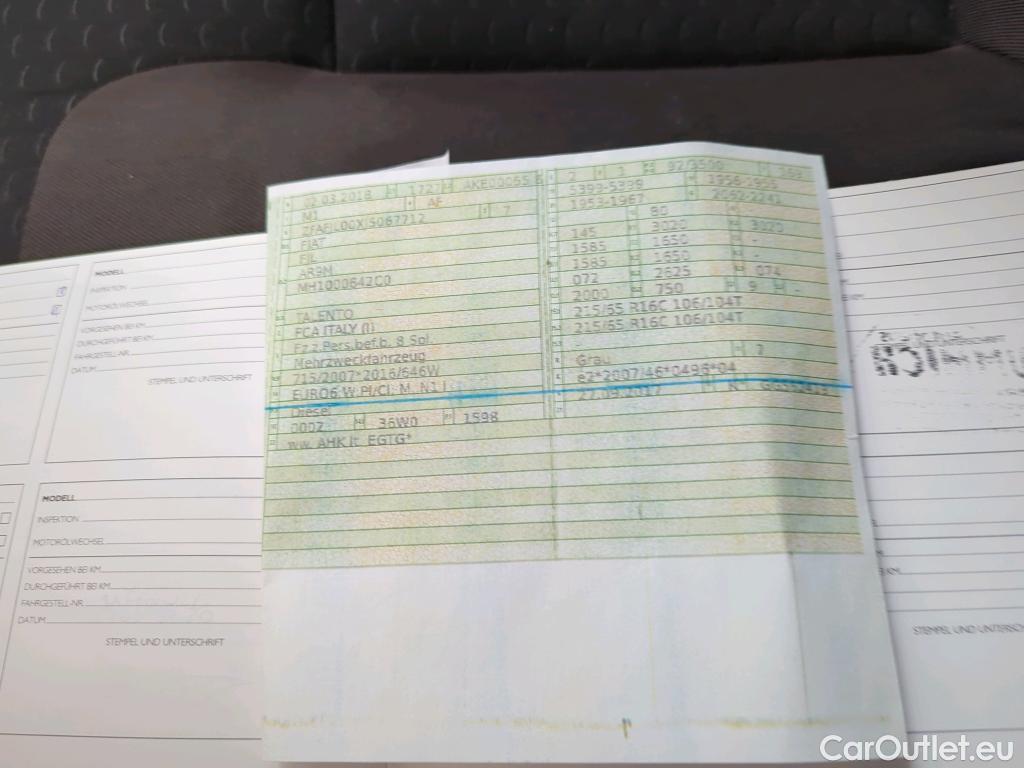 02.03.2018 1727 AKE00055 6
M1 AF
7
FIAT
FJL
AR9M
MH1000842C0
TALENTO
FCA ITALY (I)
Fz.z.Pers.bef.b. 8 Spl.
Mehrzweckfahrzeug
715/2007*2016/646W
EURO6 W,PI/CI; M, N1 I
Diesel
0002 36W0 1598
ww. AHK lt. EGTG*
2 1 92/3500
5393-5399 1956-1956
1953-1967 2092-2241
80 -
145 3020 3020
1585 1650 -
1585 1650 -
072 2625 074
2000 750 9 -
215/65 R16C 106/104T
215/65 R16C 106/104T
-
Grau 7
e2*2007/46*0496*04
27.09.2017
MODELL
INSPEKTION
MOTORÖLWECHSEL
VORGESEHEN BEI KM
DURCHGEFÜHRT BEI KM
FAHRGESTELL-NR.
DATUM
STEMPEL UND UNTERSCHRIFT
MODELL
INSPEKTION
MOTORÖLWECHSEL
VORGESEHEN BEI KM
DURCHGEFÜHRT BEI KM
FAHRGESTELL-NR.
DATUM
STEMPEL UND UNTERSCHRIFT
STEMPEL UND UNTERSCHRIFT
KM
STEMPEL UND UNTERSCHR
CarOutlet.eu